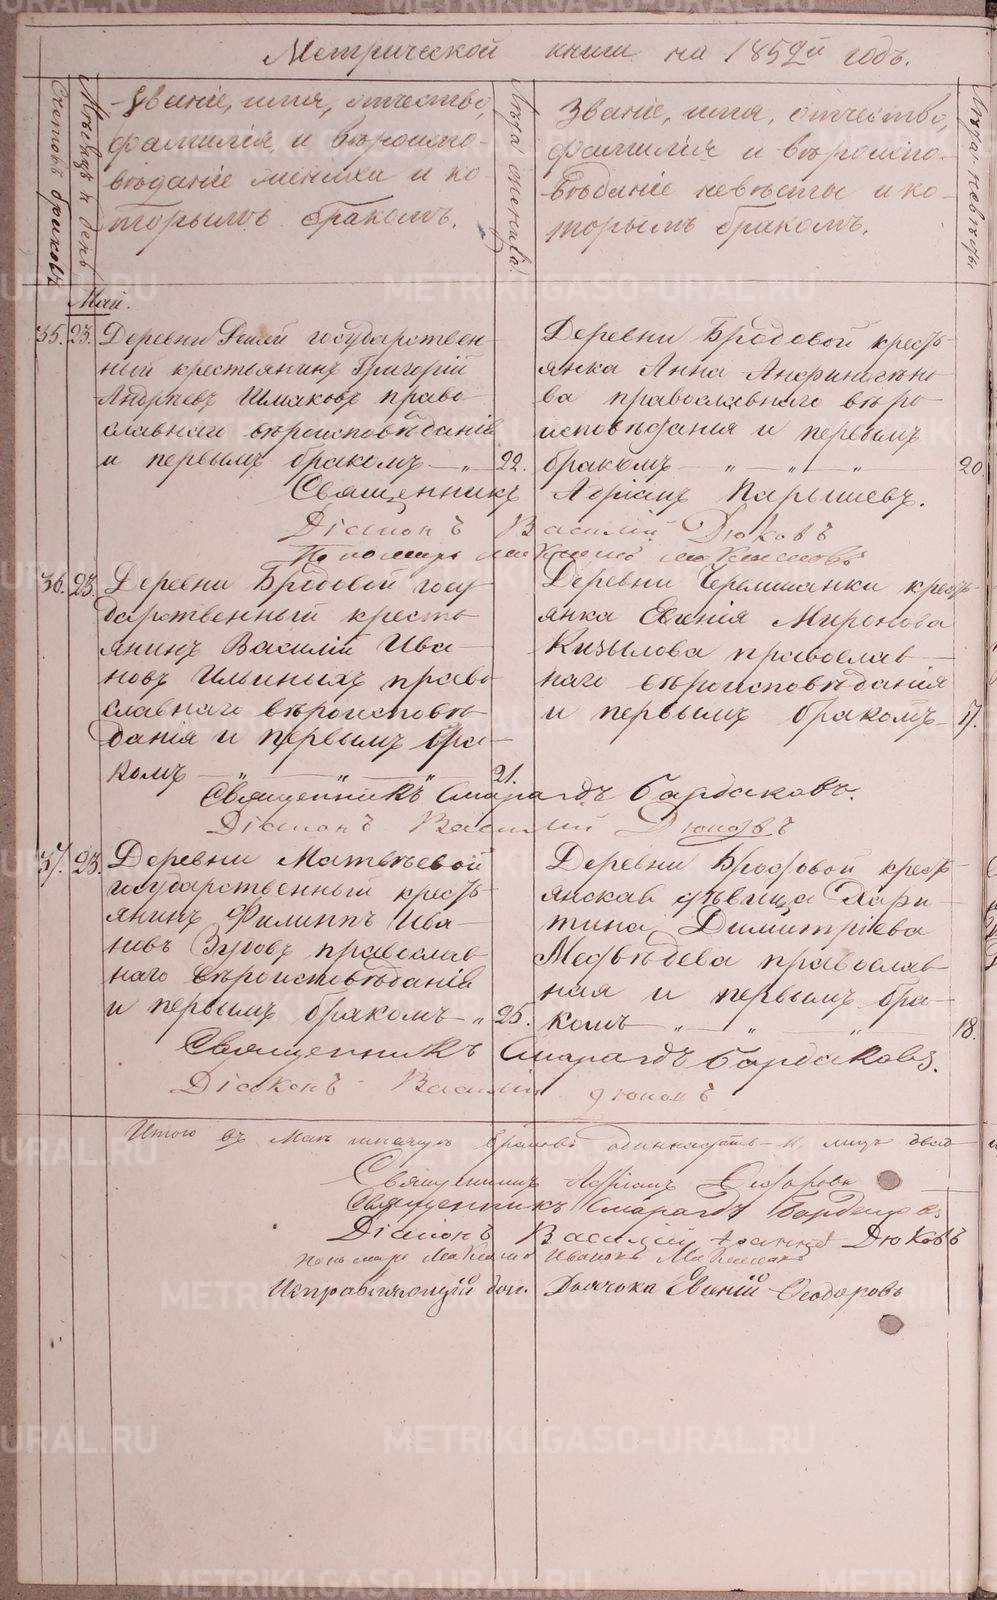 Метрической книги на 1859й годъ.
Счетовъ браковъ
Мѣсяцъ и день
Званіе, имя, отчество,
фамилія и вѣроиспо-
вѣданіе жениха и ко-
торымъ бракомъ.
Лѣта жениха.
Званіе, имя, отчество,
фамилія и вѣроиспо-
вѣданіе невѣсты и ко-
торымъ бракомъ.
Лѣта невѣсты
Май.
35. 23. Деревни государствен-
ный крестьянинъ Григорій
Андреевъ Шмаковъ право-
славнаго вѣроисповѣданія
и первымъ бракомъ — „ — 22.
Деревни Бродовой кресть-
янка Анна
ва православнаго вѣро-
исповѣданія и первымъ
бракомъ — „ — „ — „ 20.
Священникъ Адріанъ Парышевъ.
Діаконъ Василій Дюковъ
36. 23. Деревни Бродовой госу-
дарственный кресть-
янинъ Василій Ива-
новъ Ильиныхъ право-
славнаго вѣроисповѣ-
данія и первымъ бра-
комъ — „ — „ — „ 21.
Деревни Черемшанки кресть-
янка Евгенія Миронова
Кизылова православ-
наго вѣроисповѣданія
и первымъ бракомъ 17.
Священникъ Смарагдъ Бардаковъ.
Діаконъ Василій Дюковъ
37. 23. Деревни Матвѣевой
государственный кресть-
янинъ Филиппъ Ива-
новъ Зуровъ православ-
наго вѣроисповѣданія
и первымъ бракомъ — „ 25.
Деревни Бродовой кресть-
янская дѣвица Хари-
тина Димитріева
Медвѣдева православ-
ная и первымъ бра-
комъ — „ — „ „ 18.
Священникъ Смарагдъ Бардаковъ.
Діаконъ Василій Дюковъ
Итого въ Маѣ браковъ одиннадцать и лицъ
Священникъ Адріанъ
Священникъ Смарагдъ
Діаконъ Василій Дюковъ
Исправляющій дол. Дьячока Евгеній Ѳеодоровъ
METRIKI.GASO-URAL.RU